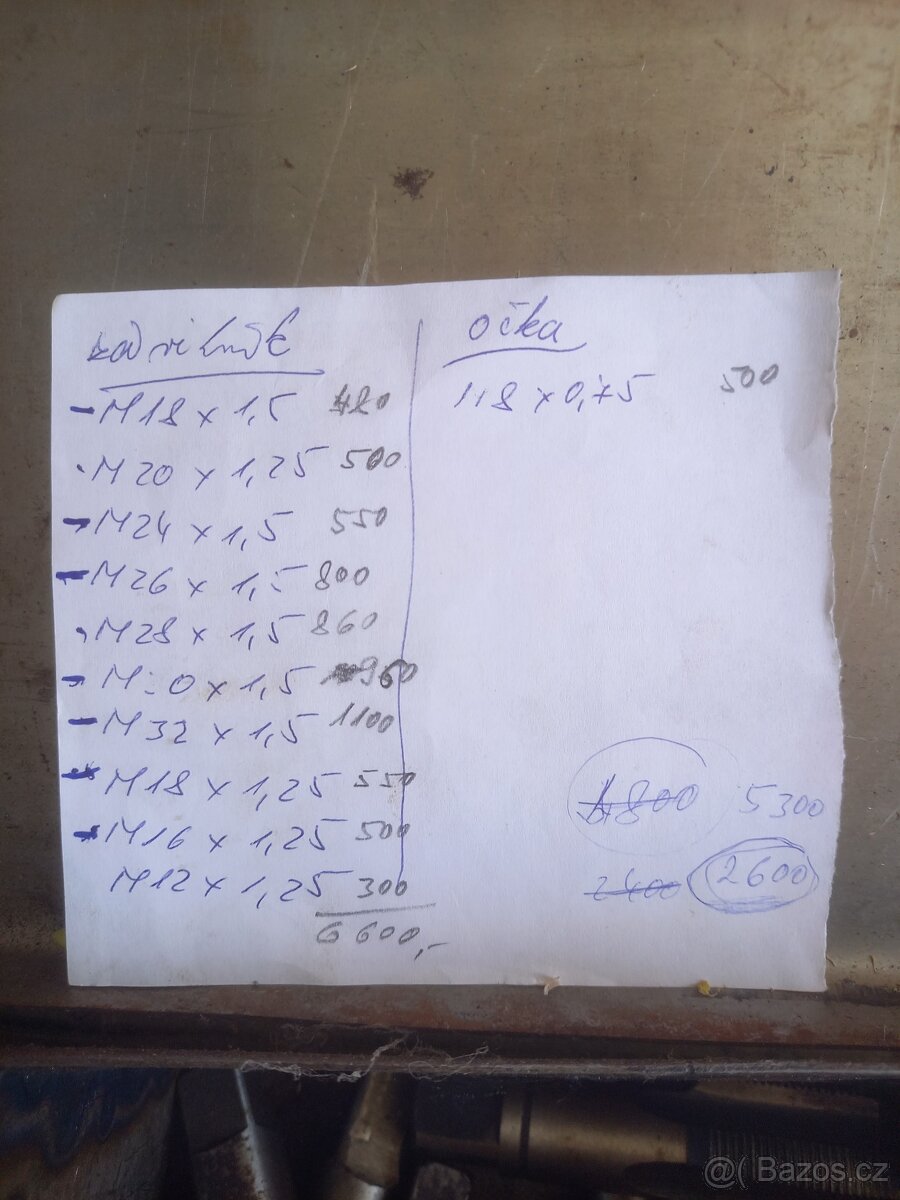 závitník
M18 x 1,5 480
M20 x 1,25 500
M24 x 1,5 550
M26 x 1,5 800
M28 x 1,5 860
M30 x 1,5 960
M32 x 1,5 1100
M18 x 1,25 550
M16 x 1,25 500
M12 x 1,25 300
6600,-
očka
1,8 x 0,75 500
4800 5300
2400 2600
@( Bazos.cz